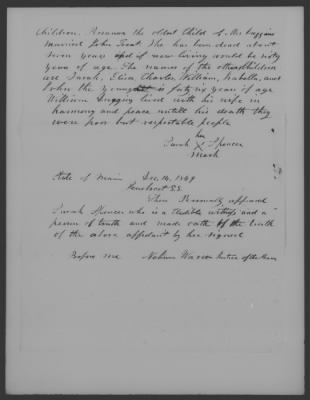 Children. Roxanna the oldest Child of Mr Duggins
married John Trask. She has been dead about
seven years and if now living would be sixty
years of age. The names of the other children
are Sarah, Eliza, Charles William, Isabella, and
John the youngest is forty six years of age
William Duggins lived with his wife in
harmony and peace untill his death they
were poor but respectable people
her
Sarah X Spencer
mark
State of Maine Dec. 14, 1849
Penobscot S.S.
Then Personally appeared
Sarah Spencer who is a credible witness and a
person of truth and made oath to the truth
of the above affidavit by her signed
Before me Nahum Warren Justice of the Peace